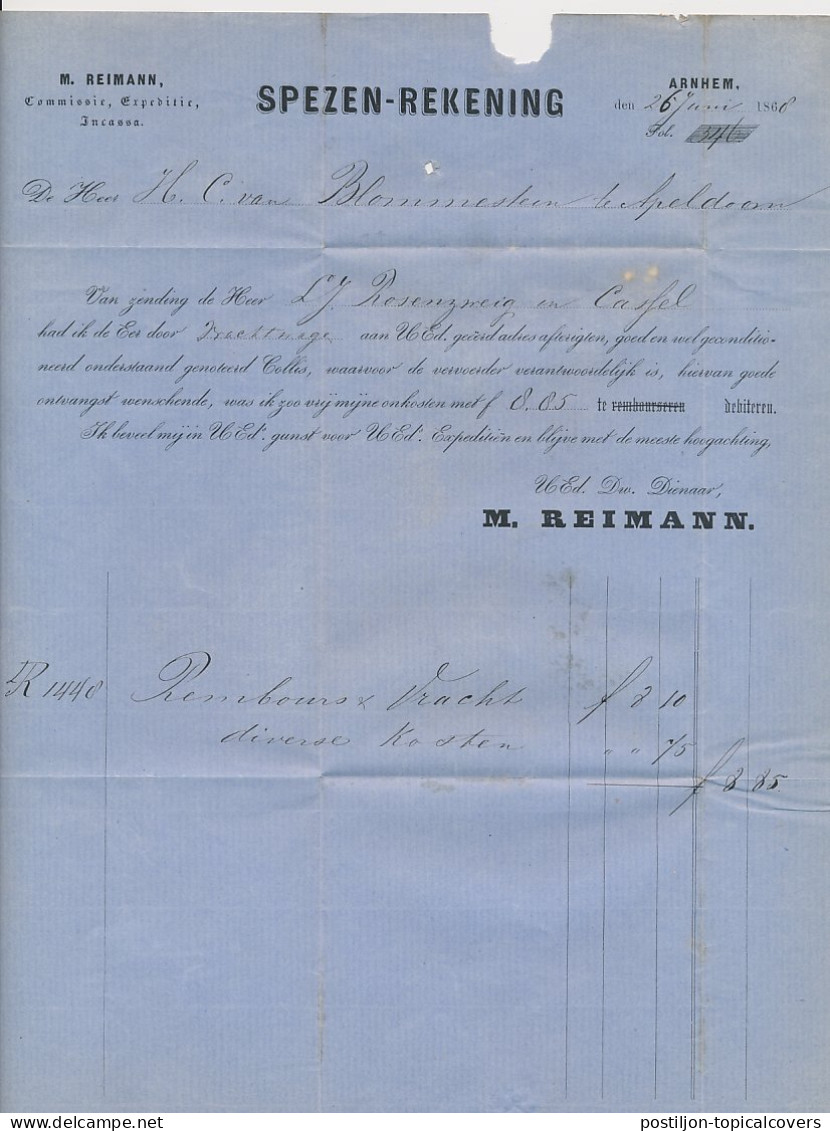 M. REIMANN,
Commissie, Expeditie,
Incassa.
SPEZEN-REKENING
ARNHEM,
den 26 Juni 1868
Fol. 546
De Heer H. C. van Blommestein te Apeldoorn
Van zending de Heer L. J. Rosenzweig en Cassel
had ik de Eer door Vrachtwage aan UEd. geëerd adres afterigten, goed en wel geconditio-
neerd onderstaand genoteerd Collis, waarvoor de vervoerder verantwoordelijk is, hiervan goede
ontvangst wenschende, was ik zoo vrij mijne onkosten met f 8.85 te rembourseren debiteren.
Ik beveel mij in UEd. gunst voor UEd. Expeditiën en blijve met de meeste hoogachting,
UEd. Dw. Dienaar,
M. REIMANN.
R 1448 Rembours & Vracht f 8 10
diverse Kosten " " 75
f 8 85
delcampe.net
postiljon-topicalcovers